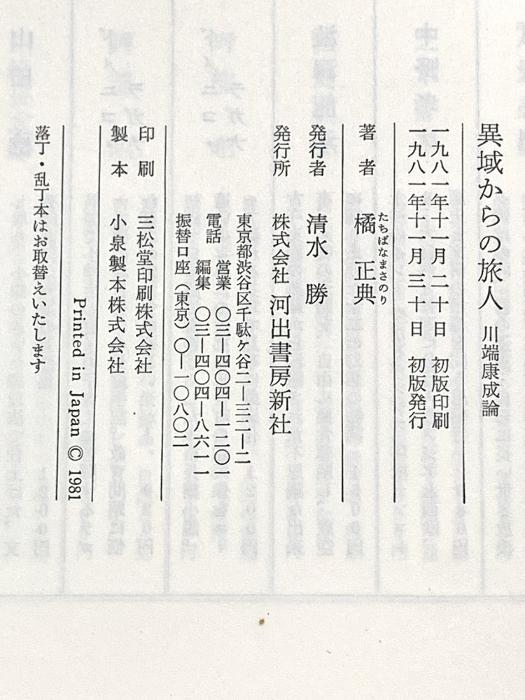 異域からの旅人 川端康成論
一九八一年十一月二十日 初版印刷
一九八一年十一月三十日 初版発行
著者 橘 正典
たちばなまさのり
発行者 清水 勝
発行所 株式会社 河出書房新社
東京都渋谷区千駄ケ谷二―三二―二
電話 営業 〇三―四〇四―一二〇一
編集 〇三―四〇四―八六一一
振替口座(東京)〇―一〇八〇二
印刷 三松堂印刷株式会社
製本 小泉製本株式会社
Printed in Japan © 1981
落丁・乱丁本はお取替えいたします